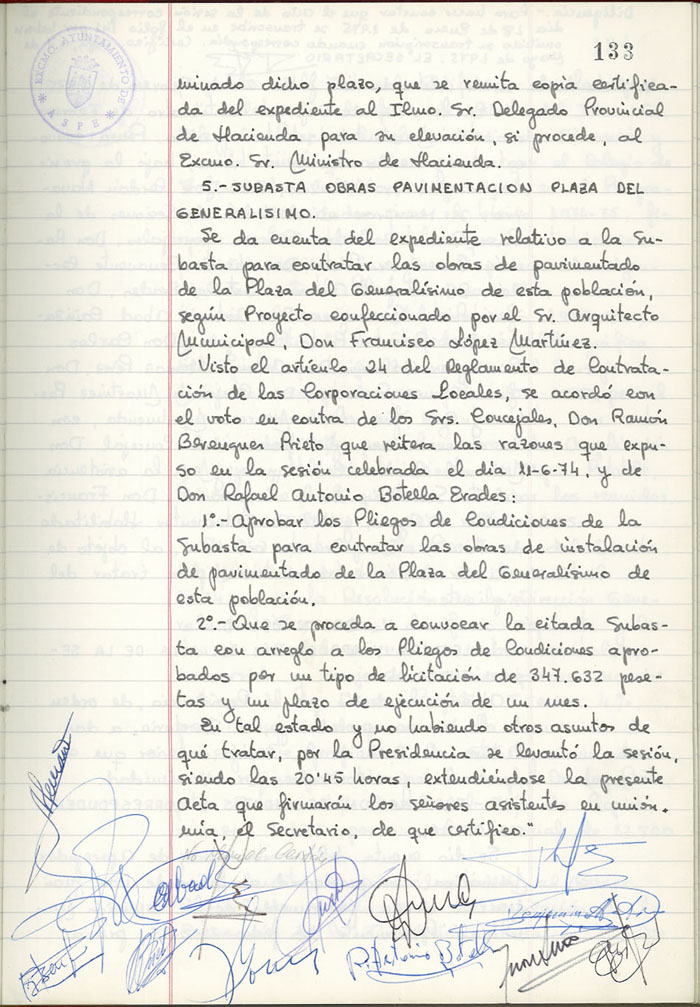 133
EXCMO. AYUNTAMIENTO DE
ASPE
minado dicho plazo, que se remita copia certifica-
da del expediente al Ilmo. Sr. Delegado Provincial
de Hacienda para su elevación, si procede, al
Excmo. Sr. Ministro de Hacienda.
5.- SUBASTA OBRAS PAVIMENTACION PLAZA DEL
GENERALISIMO.
Se da cuenta del expediente relativo a la Su-
basta para contratar las obras de pavimentado
de la Plaza del Generalísimo de esta población,
según Proyecto confeccionado por el Sr. Arquitecto
Municipal, Don Francisco López Martínez.
Visto el artículo 24 del Reglamento de Contrata-
ción de las Corporaciones Locales, se acordó con
el voto en contra de los Srs. Concejales, Don Ramón
Berenguer Prieto que reitera las razones que expu-
so en la sesión celebrada el día 11-6-74, y de
Don Rafael Antonio Botella Erades:
1º.- Aprobar los Pliegos de Condiciones de la
Subasta para contratar las obras de instalación
de pavimentado de la Plaza del Generalísimo de
esta población.
2º.- Que se proceda a convocar la citada Subas-
ta con arreglo a los Pliegos de Condiciones apro-
bados por un tipo de licitación de 347.632 pese-
tas y un plazo de ejecución de un mes.
En tal estado y no habiendo otros asuntos de
qué tratar, por la Presidencia se levantó la sesión,
siendo las 20'45 horas, extendiéndose la presente
Acta que firmarán los señores asistentes en unión.
mía, el Secretario, de que certifico."